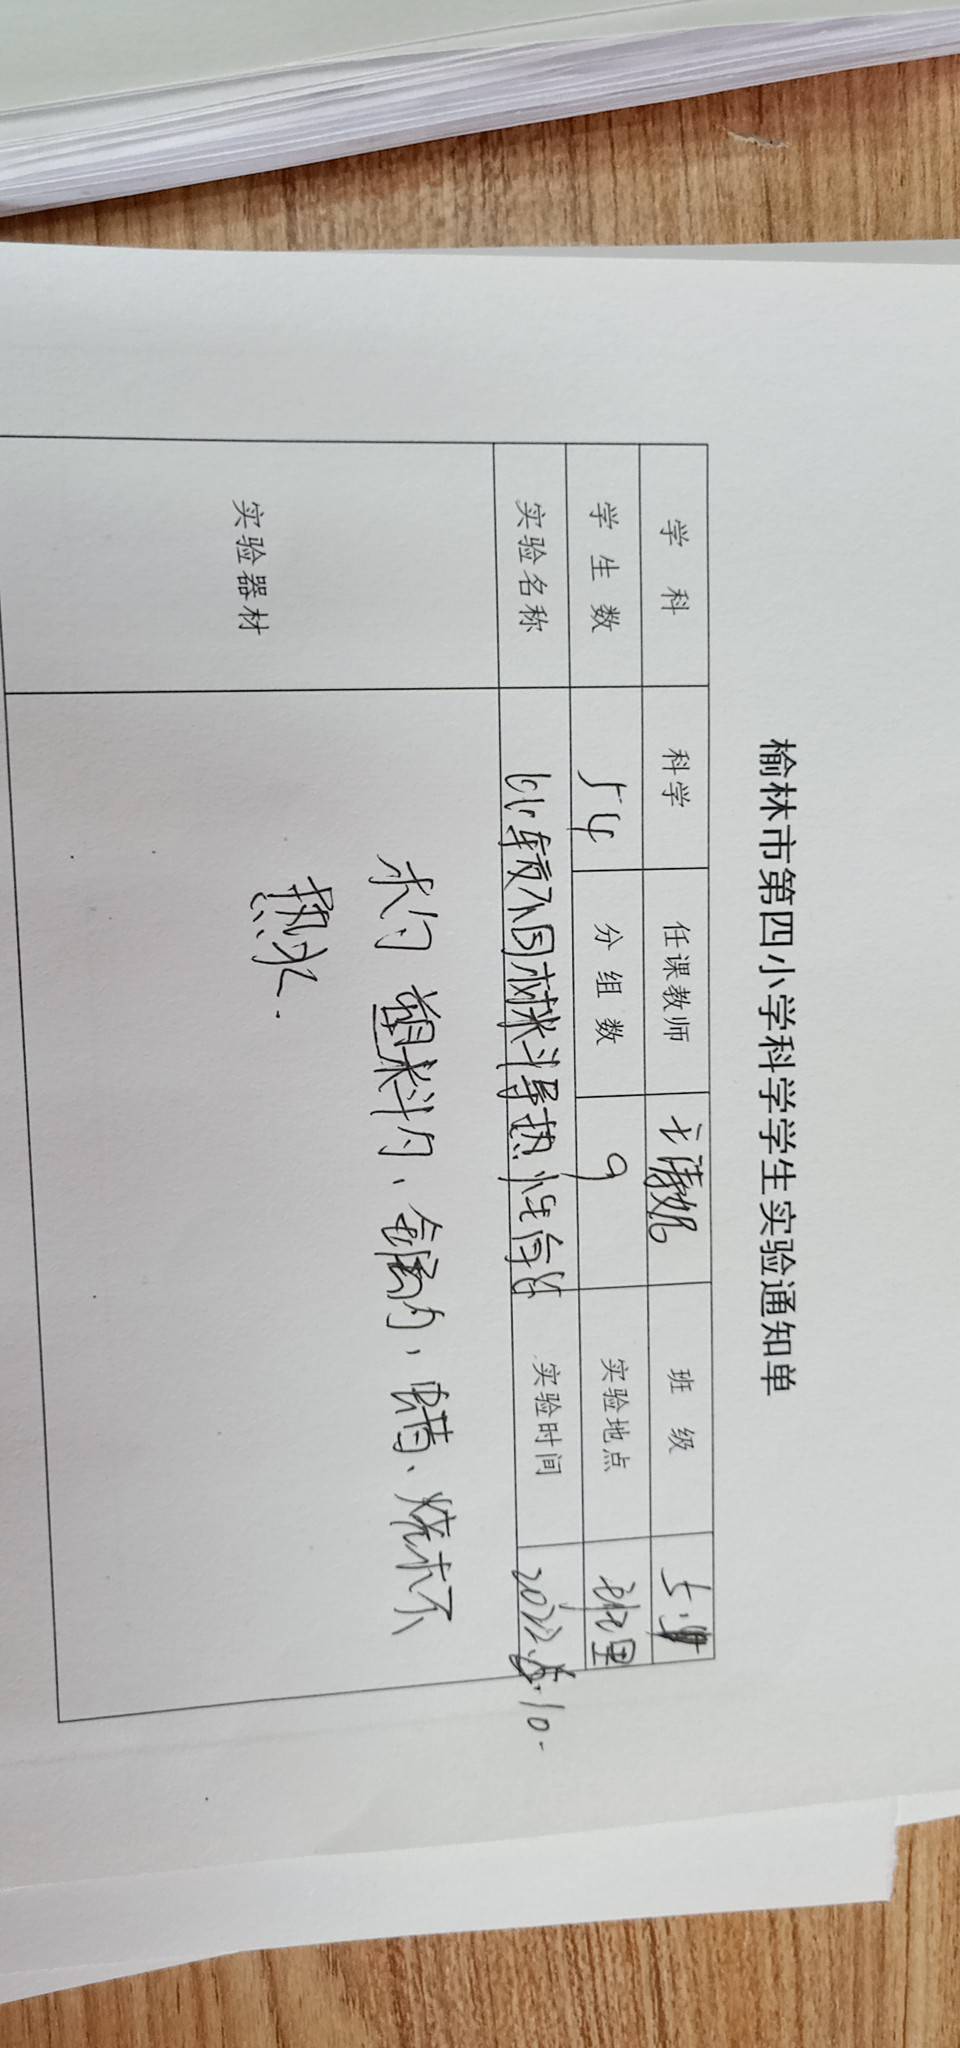 榆林市第四小学科学学生实验通知单
学 科 科学 任课教师 班 级
学 生 数 54 分 组 数 9 实验地点 班里
实验名称 比较不同材料导热性 实验时间 2022
实验器材
木勺 塑料勺、钢勺,蜡、烧杯
热水.